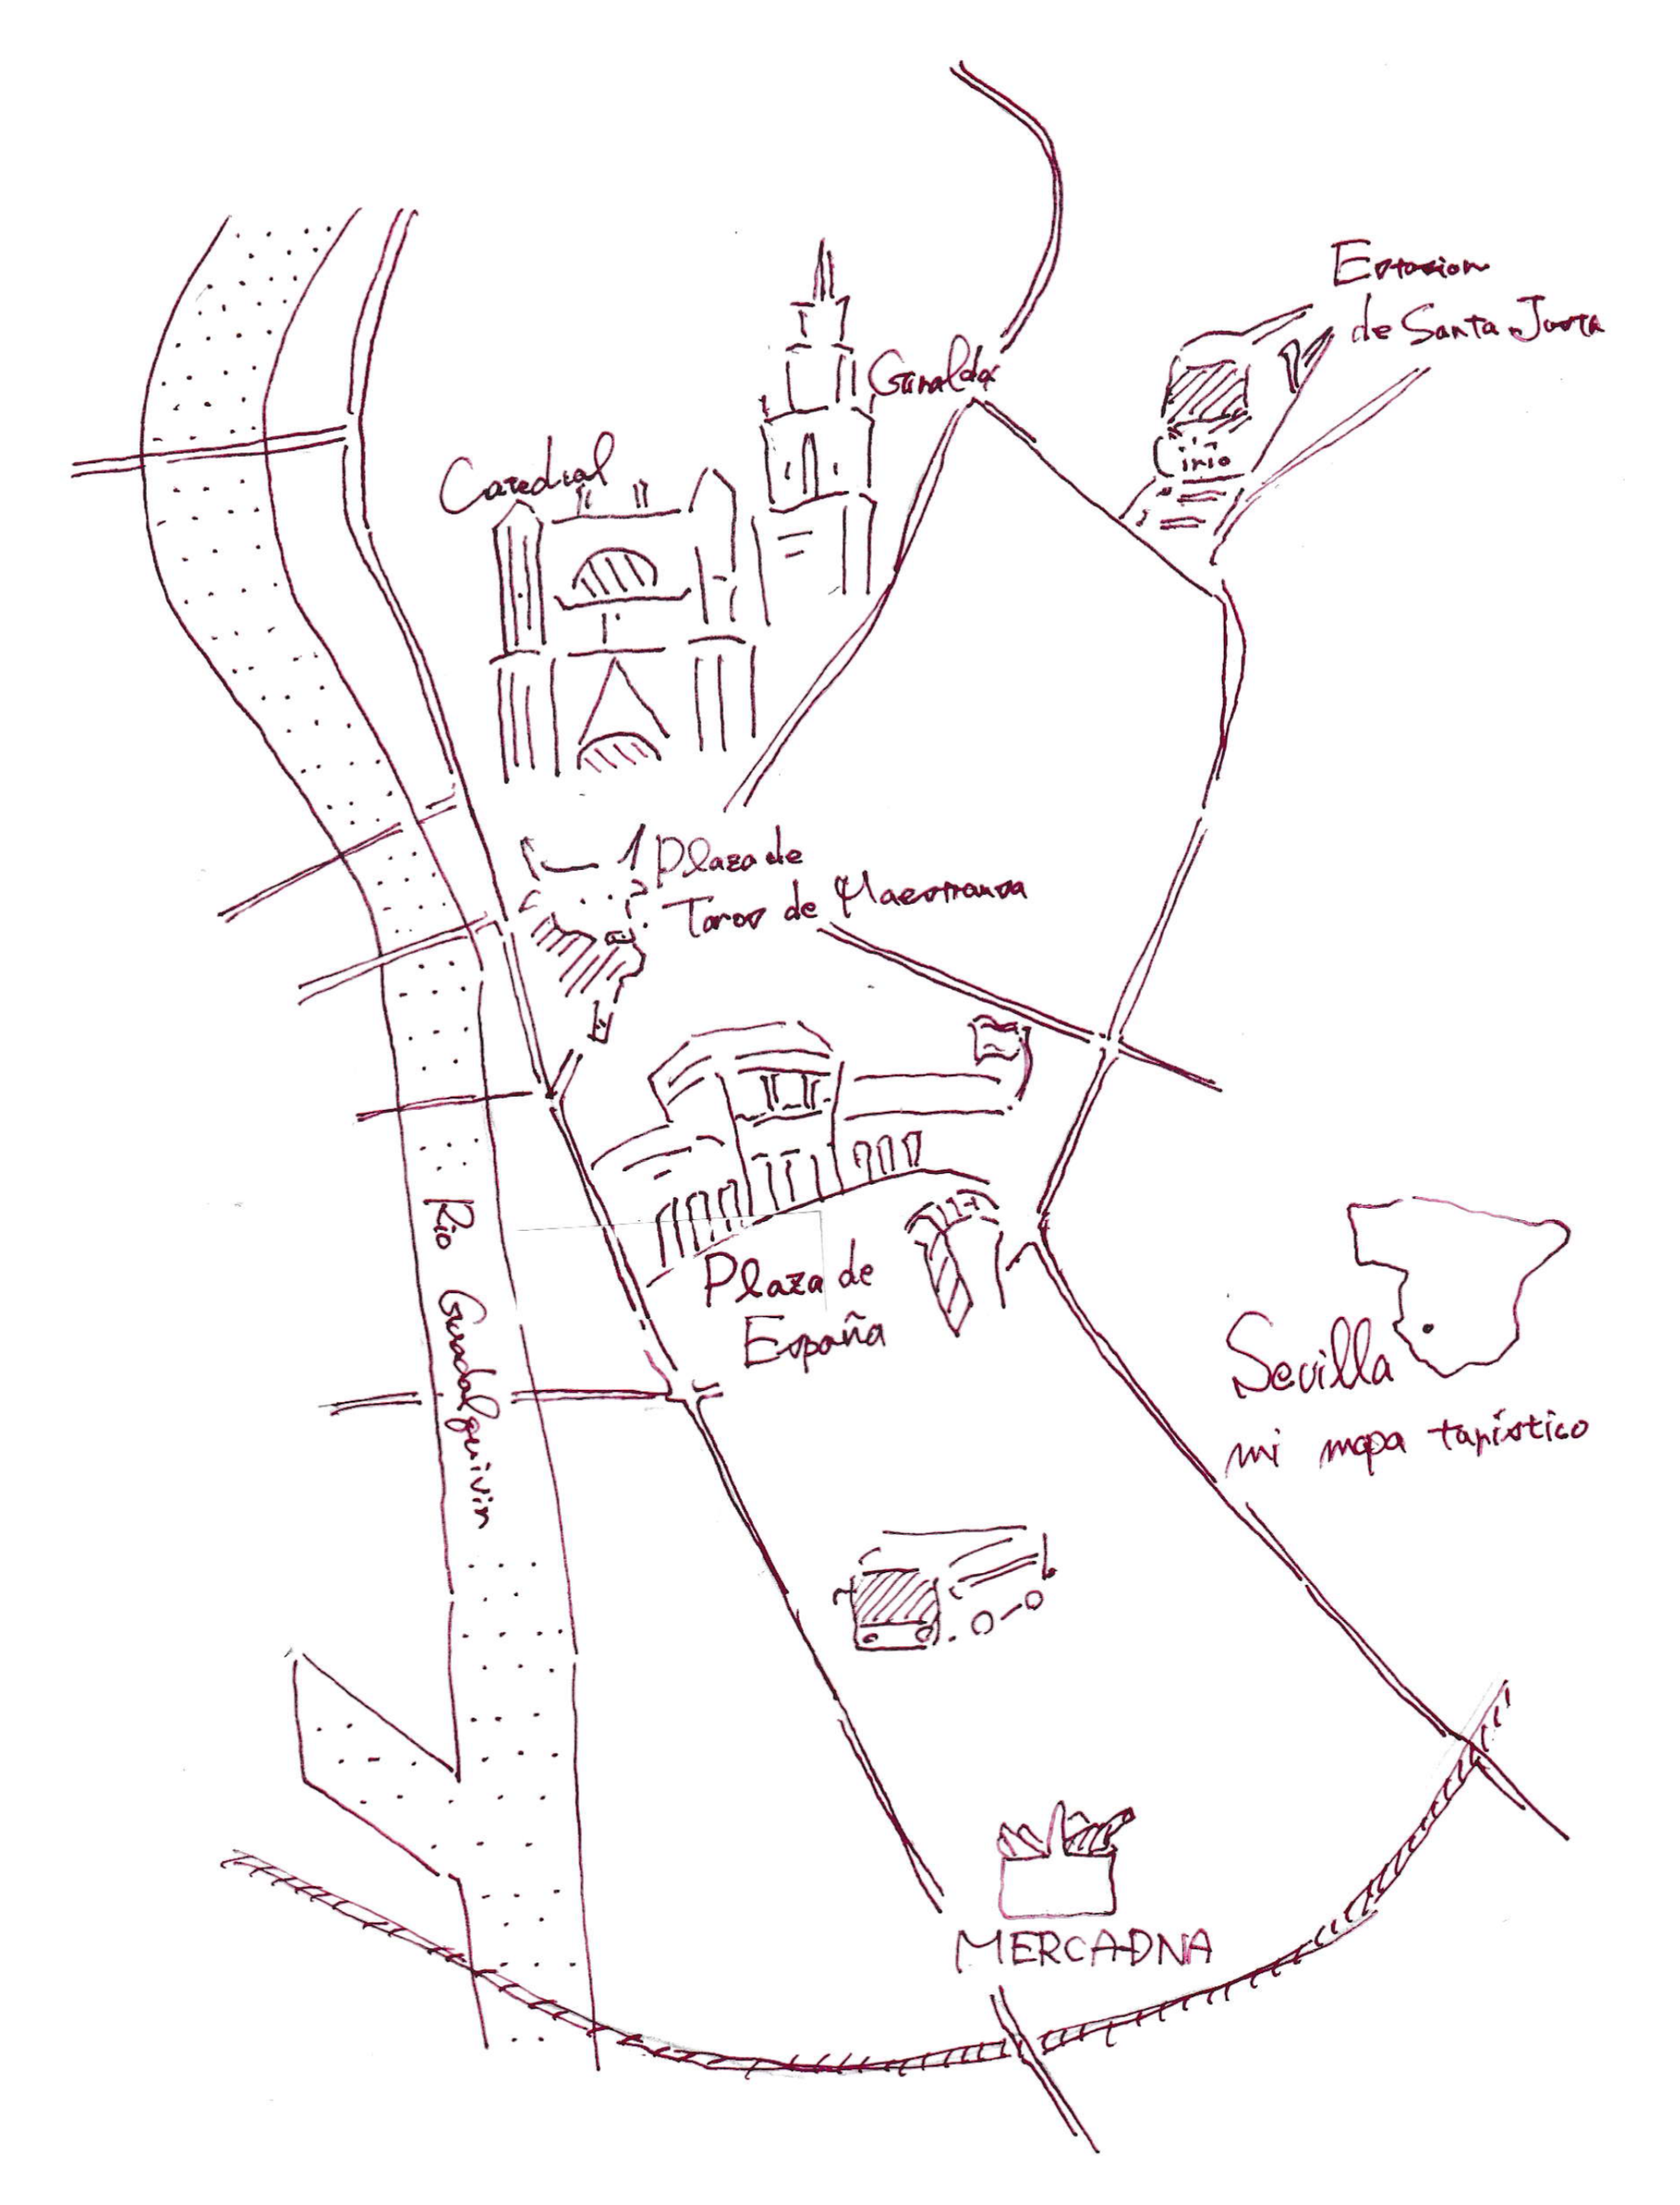 Estacion
de Santa Justa
Giralda
Catedral
Plaza de
Toros de Maestranza
Plaza de
España
Rio Guadalquivir
Sevilla
mi mapa
MERCADNA